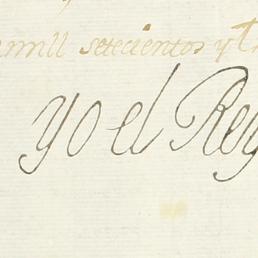 mill setecientos y
yo el Rey